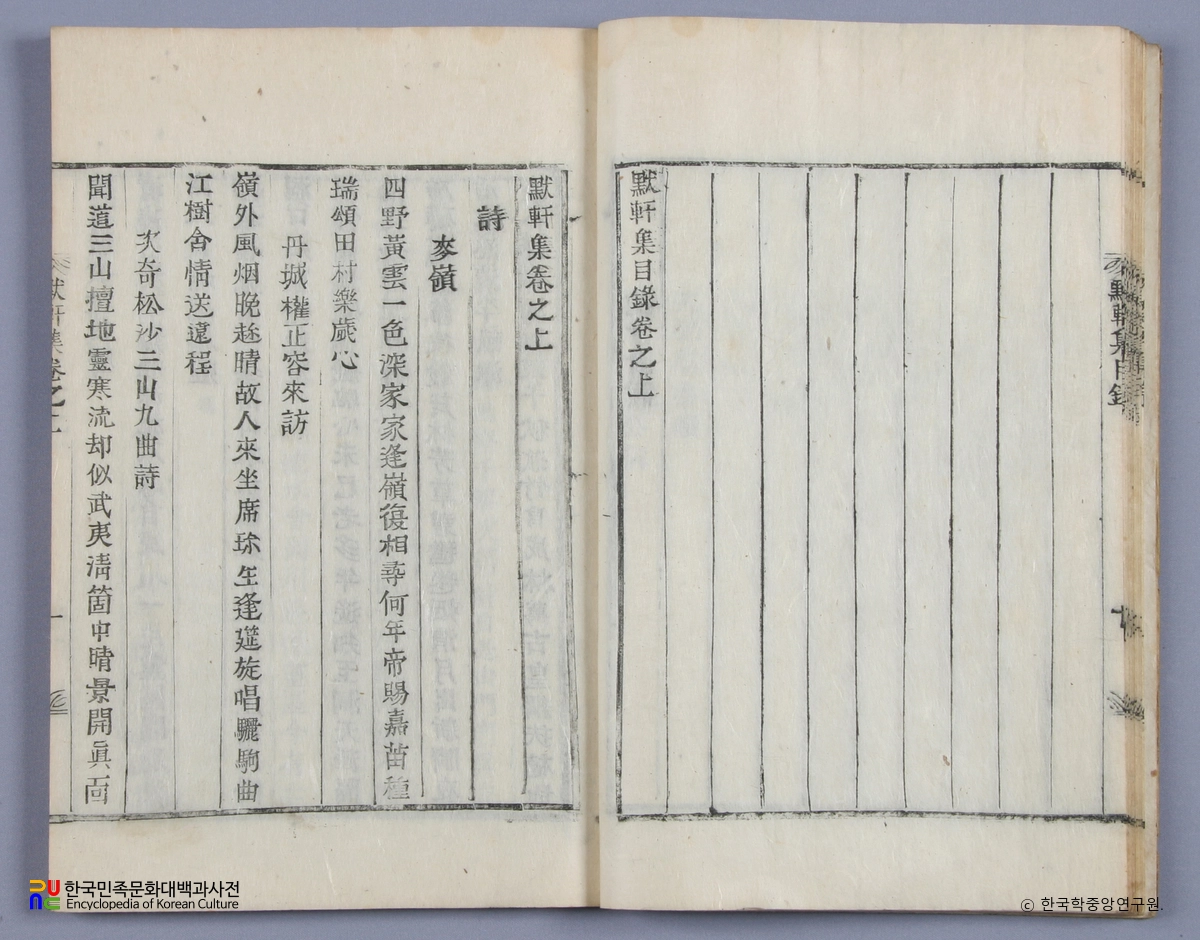 默軒集目錄
默軒集目錄卷之上
默軒集卷之上
詩
麥嶺
四野黃雲一色深家家逢嶺復相尋何年帝賜嘉苗種
瑞頌田村樂歲心
丹城權正容來訪
嶺外風烟晩趂晴故人來坐席珎生逢筵旋唱驪駒曲
江樹含情送遠程
次奇松沙三山九曲詩
聞道三山擅地靈寒流却似武夷淸箇中晴景開眞面
默軒集卷之上
一
한국민족문화대백과사전
Encyclopedia of Korean Culture
© 한국학중앙연구원.